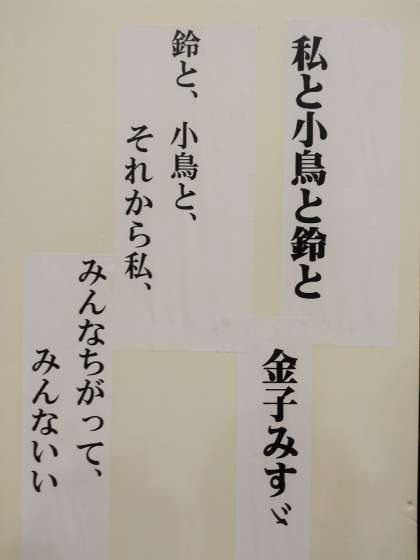 私と小鳥と鈴と
金子みすゞ
鈴と、小鳥と、
それから私、
みんなちがって、
みんないい